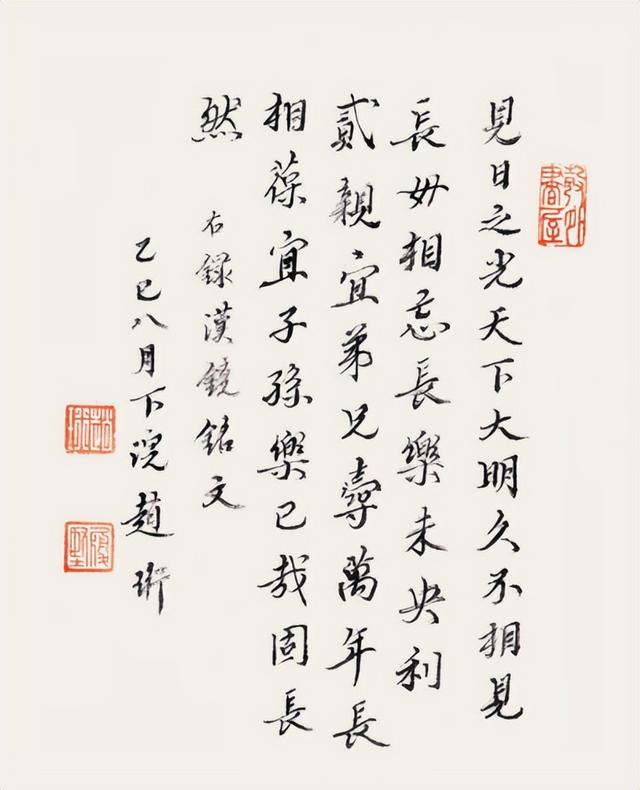 見日之光天下大明久不相見
長毋相忘長樂未央利
貳親宜弟兄壽萬年長
相葆宜子孫樂已哉固長
然
右錄漢鏡銘文
乙巳八月下浣趙珩